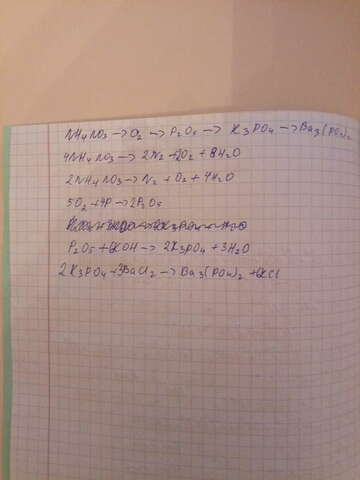 NH4NO3 → O2 → P2O5 → K3PO4 → Ba3(PO4)2
4NH4NO3 → 2N2 + 2O2 + 8H2O
2NH4NO3 → N2 + O2 + 4H2O
5O2 + 4P → 2P2O5
P2O5 + 6KOH → 2K3PO4 + 3H2O
2K3PO4 + 3BaCl2 → Ba3(PO4)2 + 6KCl